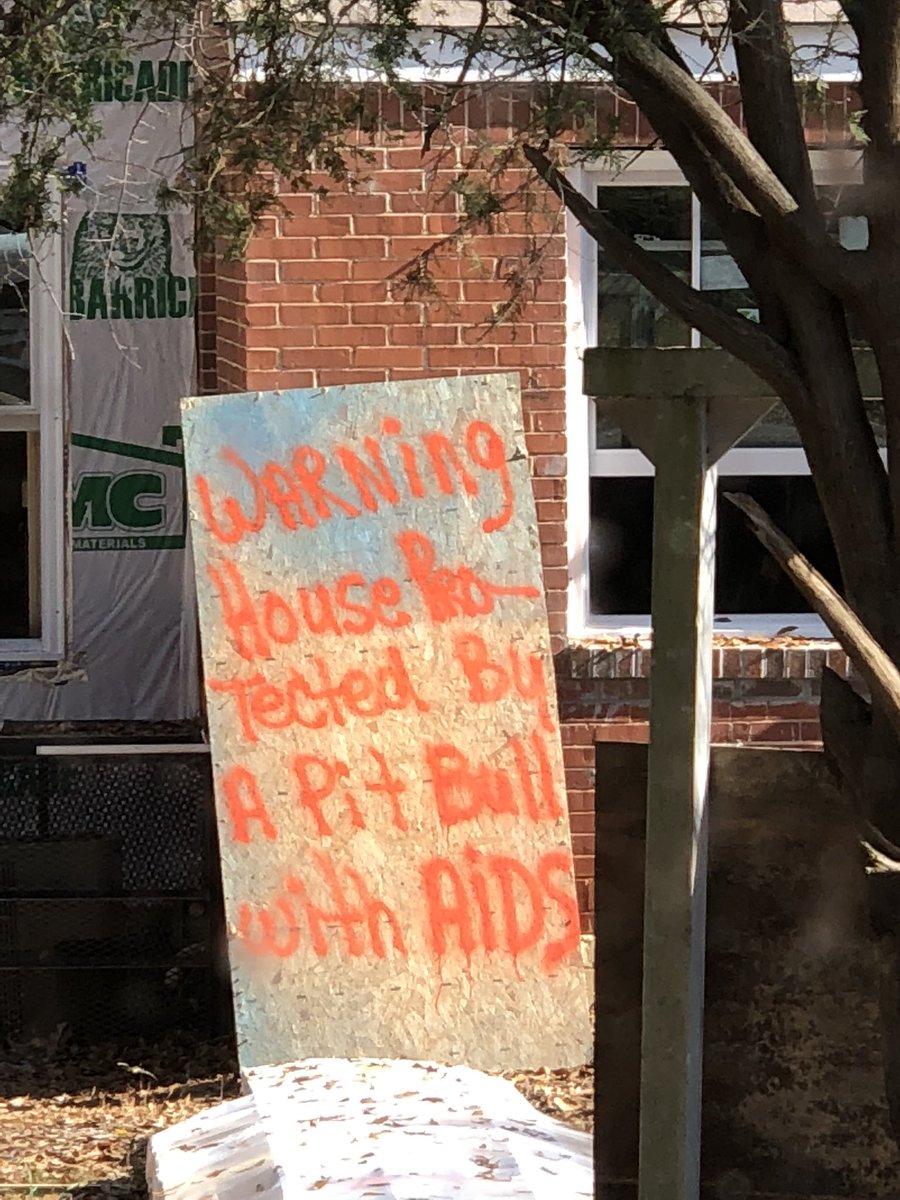 RICADE
BARRIC
MC
MATERIALS
WARNing
House Pro-
Tected By
A Pit Bull
with AiDS